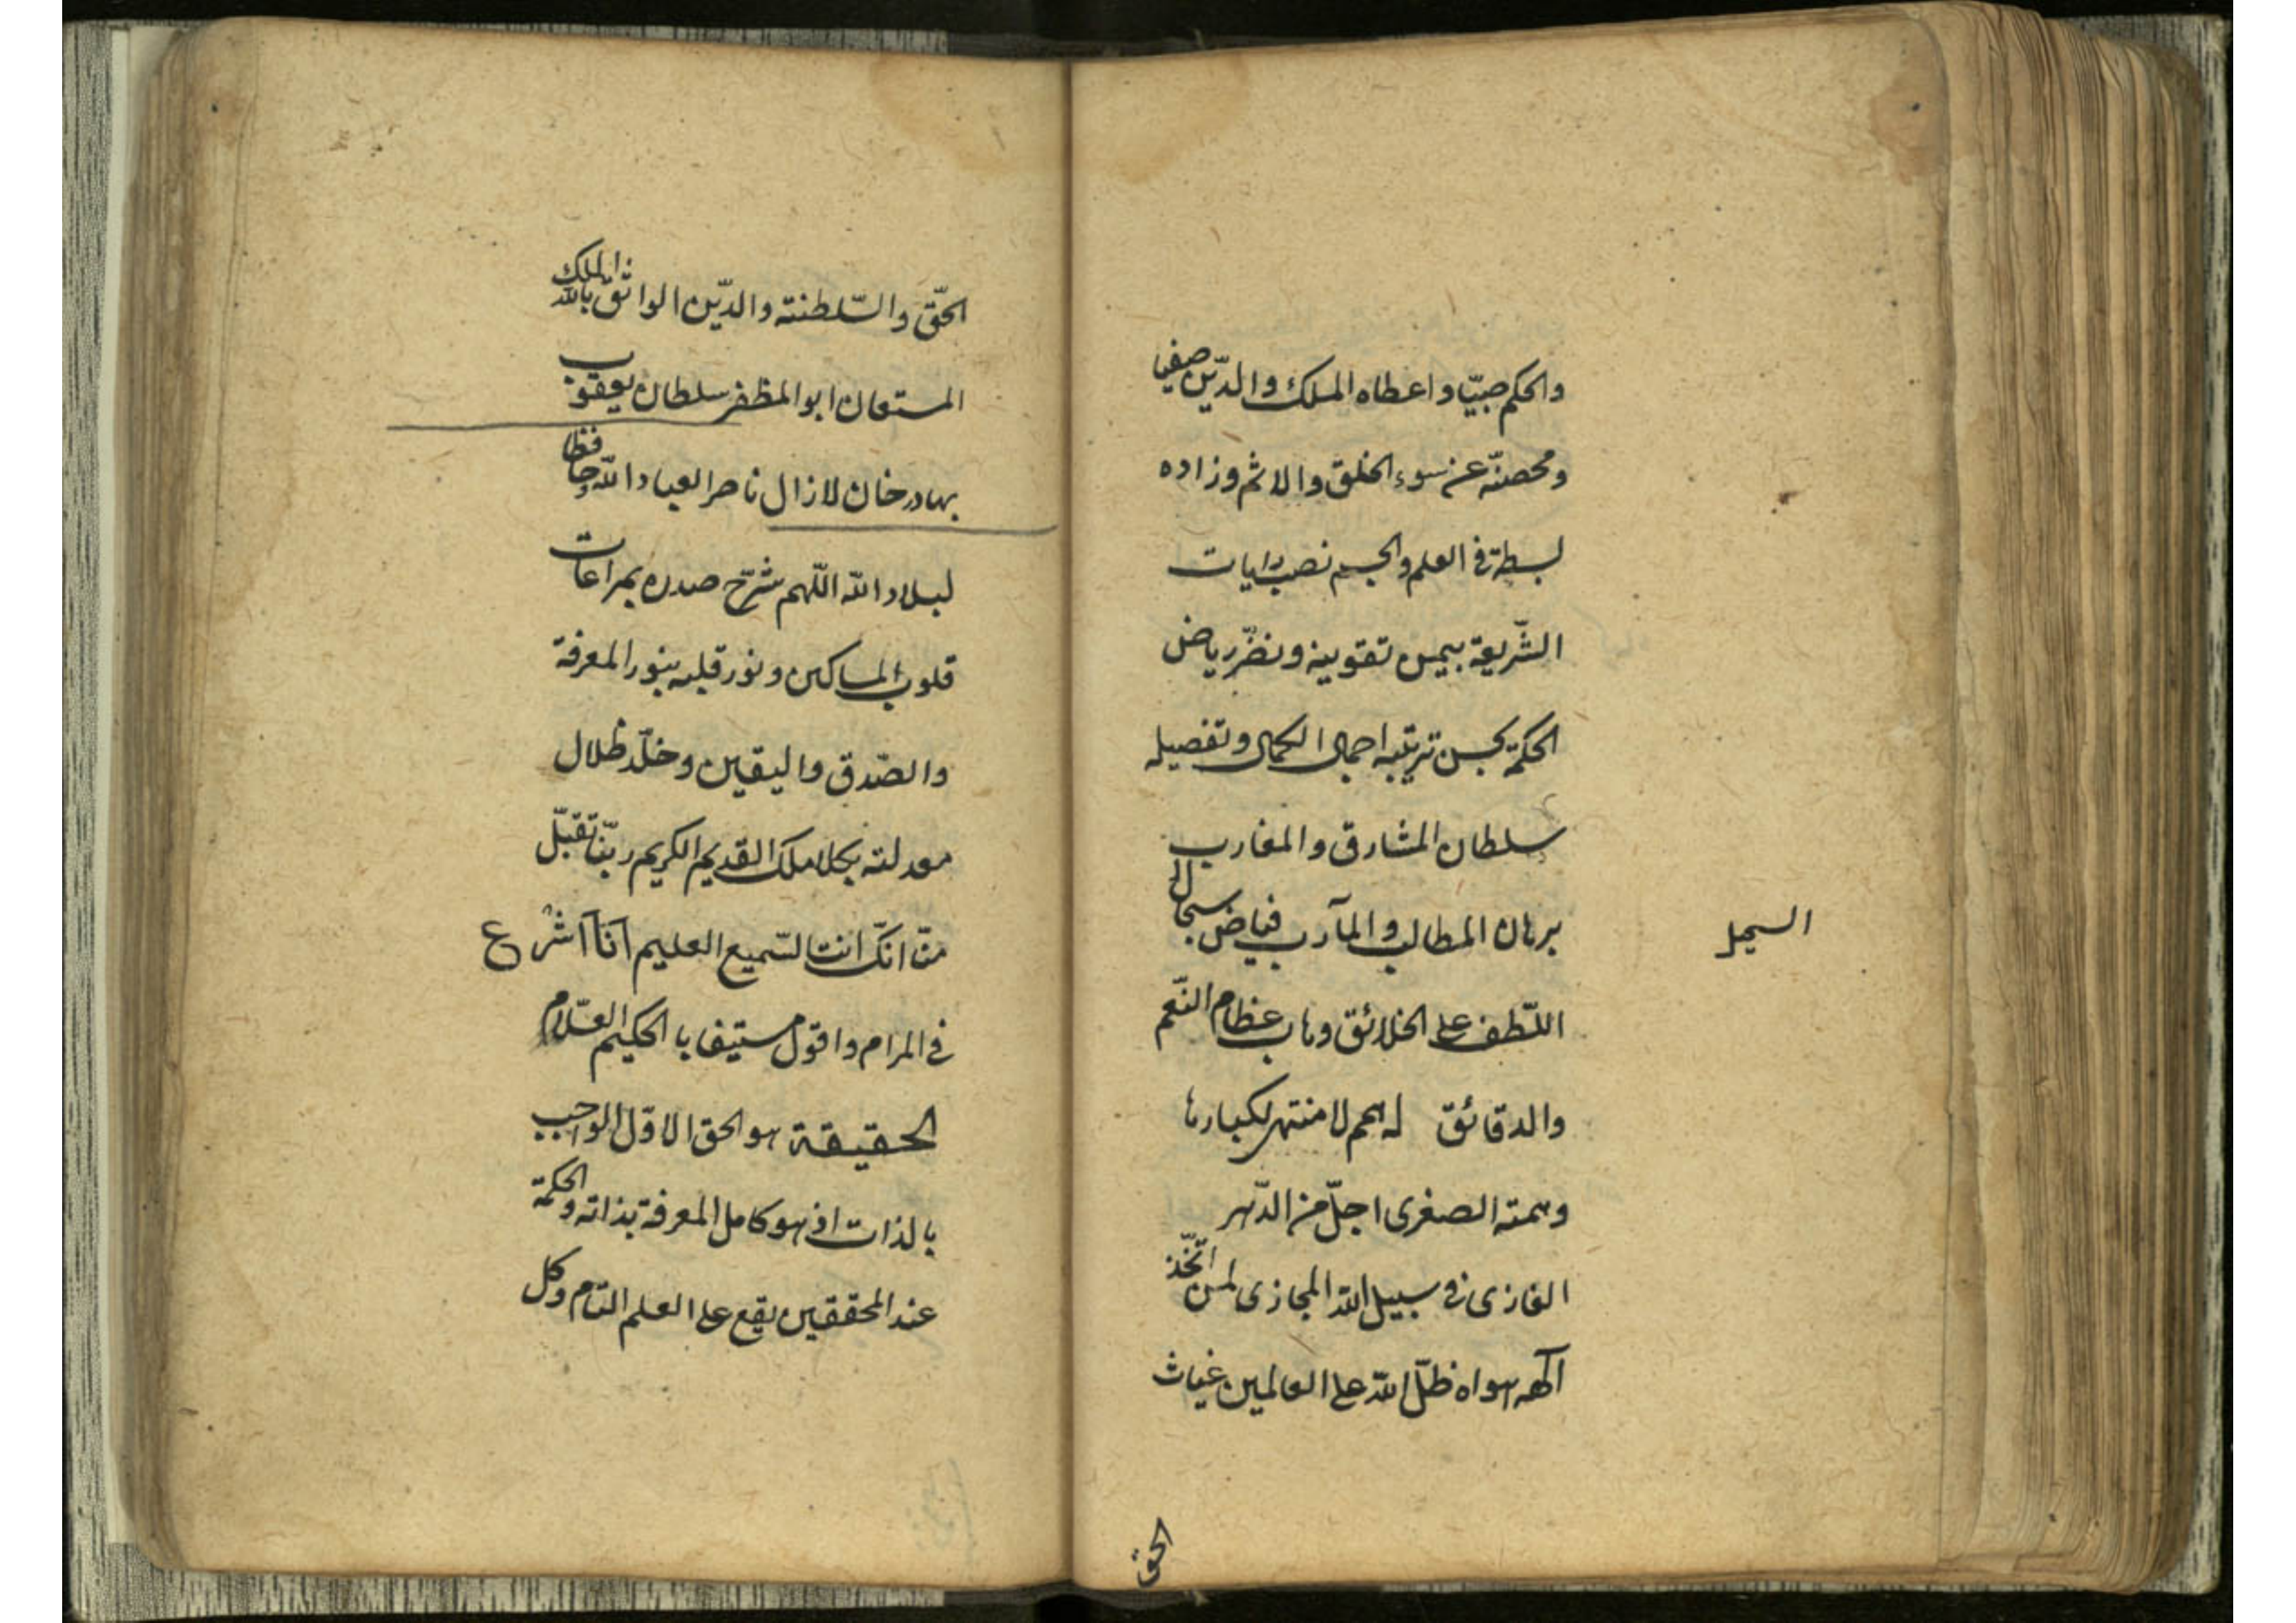 والحكم صبيّا واعطاه الملك والدّين صفيا
ومحصنّه عن سوء الخلق والاثم وزاده
بسطة فى العلم والجسم نصب رايات
الشّريعة بيمن تقويمه ونضّر رياض
الحكمة بحسن ترتيبه اجمال الكمال وتفصيله
سلطان المشارق والمغارب
برهان المطالب والمآرب فياض سجال
السجل
اللّطف على الخلائق وهاب عظام النّعم
والدقائق له همم لا منتهى لكبارها
وهمته الصغرى اجلّ من الدّهر
الغازى فى سبيل الله المجازى لمن اتّخذ
آلهه هواه ظلّ الله على العالمين غياث
الحق
الحقّ والسّلطنة والدّين الواثق بالله الملك
المستعان ابو المظفر سلطان يعقوب
بهادر خان لازال ناصرا لعباد الله وحافظا
لبلاد الله اللّهم شرّح صدره بمراعات
قلوب المساكين ونور قلبه بنور المعرفة
والصّدق واليقين وخلّد ظلال
معدلته بكلامك القديم الكريم ربّنا تقبّل
منّا انّك انت السّميع العليم آنا آشرع
فى المرام واقول مستفيضا بالحكيم العلّام
الحقيقة هو الحق الاوّل الواجب
بالذات اذ هو كامل المعرفة بذاته والحكمة
عند المحققين يقع على العلم التام وكل